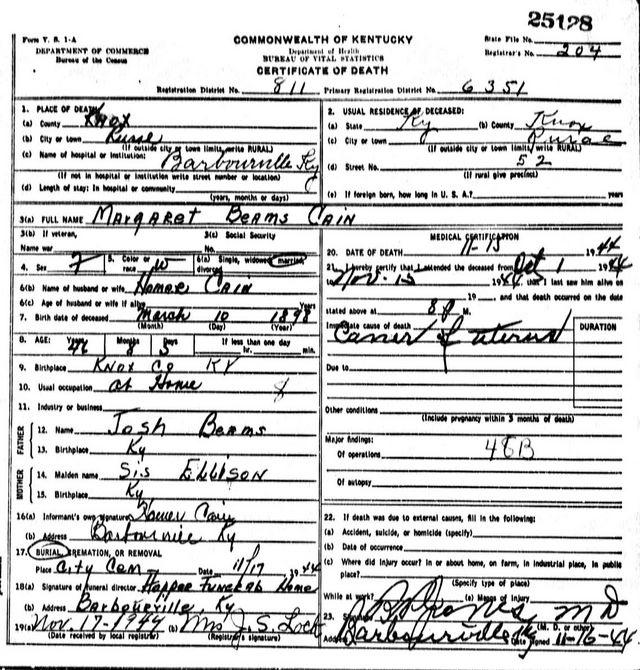 25128
Form V. S. 1-A
DEPARTMENT OF COMMERCE
Bureau of the Census
COMMONWEALTH OF KENTUCKY
Department of Health
BUREAU OF VITAL STATISTICS
CERTIFICATE OF DEATH
State File No.
Registrar's No. 204
Registration District No. 811 Primary Registration District No. 6351
1. PLACE OF DEATH
(a) County Knox
(b) City or town Rural
(If outside city or town limits, write RURAL)
(c) Name of hospital or institution: Barbourville Ky
(If not in hospital or institution write street number or location)
(d) Length of stay: In hospital or community
(years, months or days)
2. USUAL RESIDENCE OF DECEASED:
(a) State Ky (b) County Knox
(c) City or town Rural
(If outside city or town limits, write RURAL)
(d) Street No. 52
(If rural give precinct)
(e) If foreign born, how long in U. S. A.? years
3(a) FULL NAME Margaret Beams Cain
3(b) If veteran, Name war
3(c) Social Security No.
4. Sex F
5. Color or race W
6(a) Single, widowed, married, divorced
6(b) Name of husband or wife Homer Cain
6(c) Age of husband or wife if alive Years
7. Birth date of deceased March 10 1898
(Month) (Day) (Year)
8. AGE: Years 46 Months 8 Days 5 If less than one day hr. min.
9. Birthplace Knox Co Ky
10. Usual occupation at Home
11. Industry or business
FATHER
12. Name Josh Beams
13. Birthplace Ky
MOTHER
14. Maiden name Sis Ellison
15. Birthplace Ky
16(a) Informant's own signature Homer Cain
(b) Address Barbourville Ky
17. BURIAL, CREMATION, OR REMOVAL
Place City Cem Date 11/17 1944
18(a) Signature of funeral director Hopper Funeral Home
(b) Address Barbourville, Ky
19(a) Nov. 17-1944 (b) Mrs J. S. Lock
(Date received by local registrar) (Registrar's signature)
MEDICAL CERTIFICATION
20. DATE OF DEATH 11-15 1944
21. I hereby certify that I attended the deceased from Oct 1 1944
to Nov-15 1944, that I last saw him alive on
19 , and that death occurred on the date
stated above at 8 P M.
Immediate cause of death
Cancer of uterus
DURATION
Due to
Other conditions
(Include pregnancy within 3 months of death)
Major findings:
Of operations 48B
Of autopsy
22. If death was due to external causes, fill in the following:
(a) Accident, suicide, or homicide (specify)
(b) Date of occurrence
(c) Where did injury occur? In or about home, on farm, in industrial place, in public place?
(Specify type of place)
While at work? (e) Means of injury
23. Jones MD
(M. D. or other)
Address Barbourville Ky Date signed 11-16-44